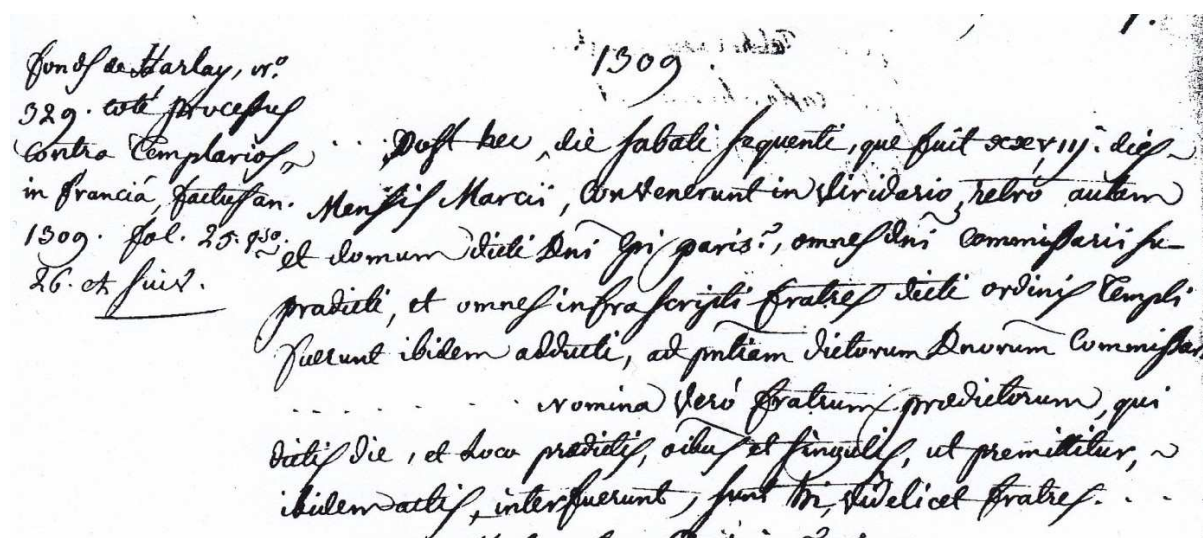 1.
1309.
fonds de Harlay, n.º
329. coté processus
contra Templarios
in franciâ, factus an.
1309. fol. 25. vso.
26. et suiv.
... Post hec, die sabati sequenti, que fuit xxviij. dies
Mensis Marcii, convenerunt in viridario, retrò autam
et domum dicti Dni Epi paris., omnes dni commissarii su-
pradicti, et omnes infrascripti fratres dicti ordinis Templi
fuerunt ibidem adducti, ad pntiam dictorum Dnorum Commissar.
. . . . . . . . . Nomina verò fratrum prædictorum, qui
dictis die, et loco prædictis, oibus et singulis, ut premittitur,
ibidem actis, interfuerunt, sunt hii, videlicet fratres. . .